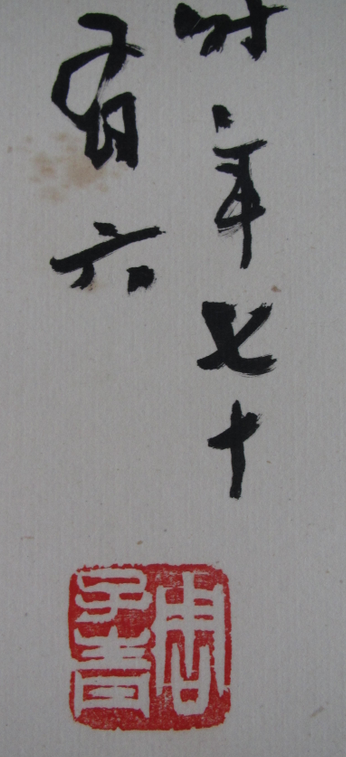 时年七十
有六
周
子青